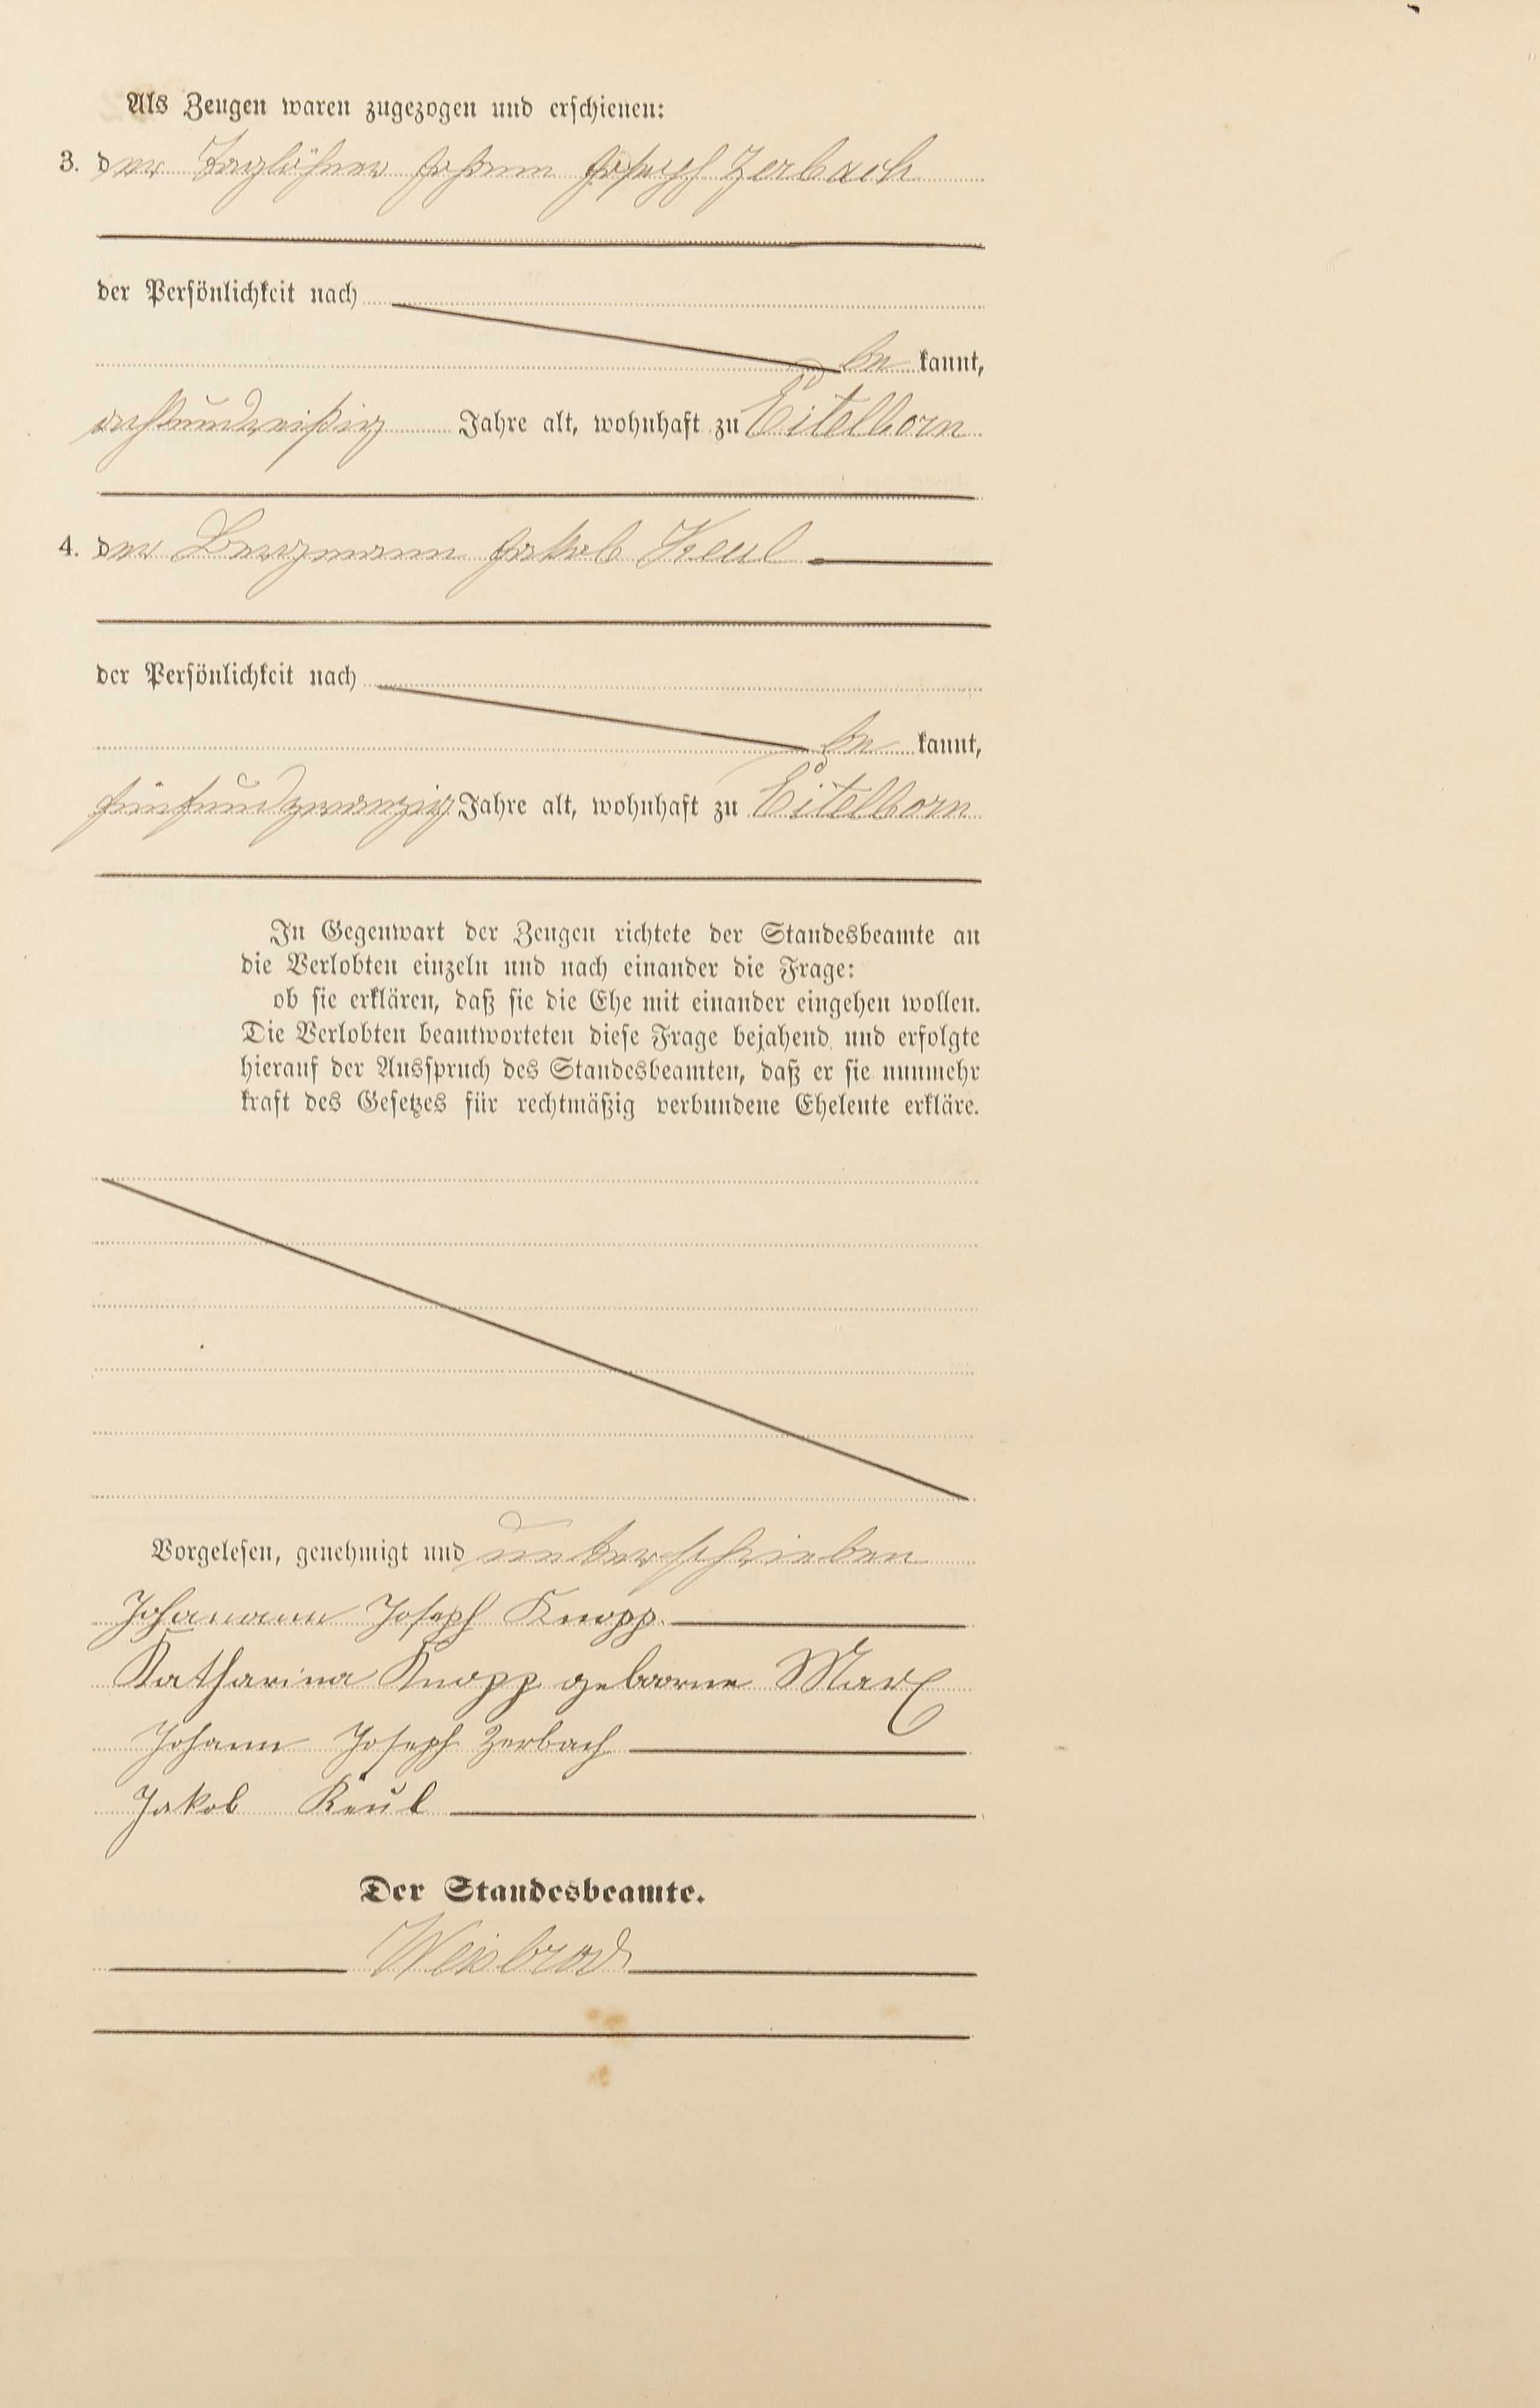 Als Zeugen waren zugezogen und erschienen:
3. der Taglöhner Johann Joseph Zerbach
der Persönlichkeit nach
be kannt,
achtunddreißig Jahre alt, wohnhaft zu Eitelborn
4. der Bergmann Jakob Keul
der Persönlichkeit nach
be kannt,
fünfundzwanzig Jahre alt, wohnhaft zu Eitelborn
In Gegenwart der Zeugen richtete der Standesbeamte an
die Verlobten einzeln und nach einander die Frage:
ob sie erklären, daß sie die Ehe mit einander eingehen wollen.
Die Verlobten beantworteten diese Frage bejahend und erfolgte
hierauf der Ausspruch des Standesbeamten, daß er sie nunmehr
kraft des Gesetzes für rechtmäßig verbundene Eheleute erkläre.
Vorgelesen, genehmigt und unterschrieben
Johann Joseph Knopp.
Katharina Knopp geborne Marx
Johann Joseph Zerbach
Jakob Keul
Der Standesbeamte.
Weisbrod